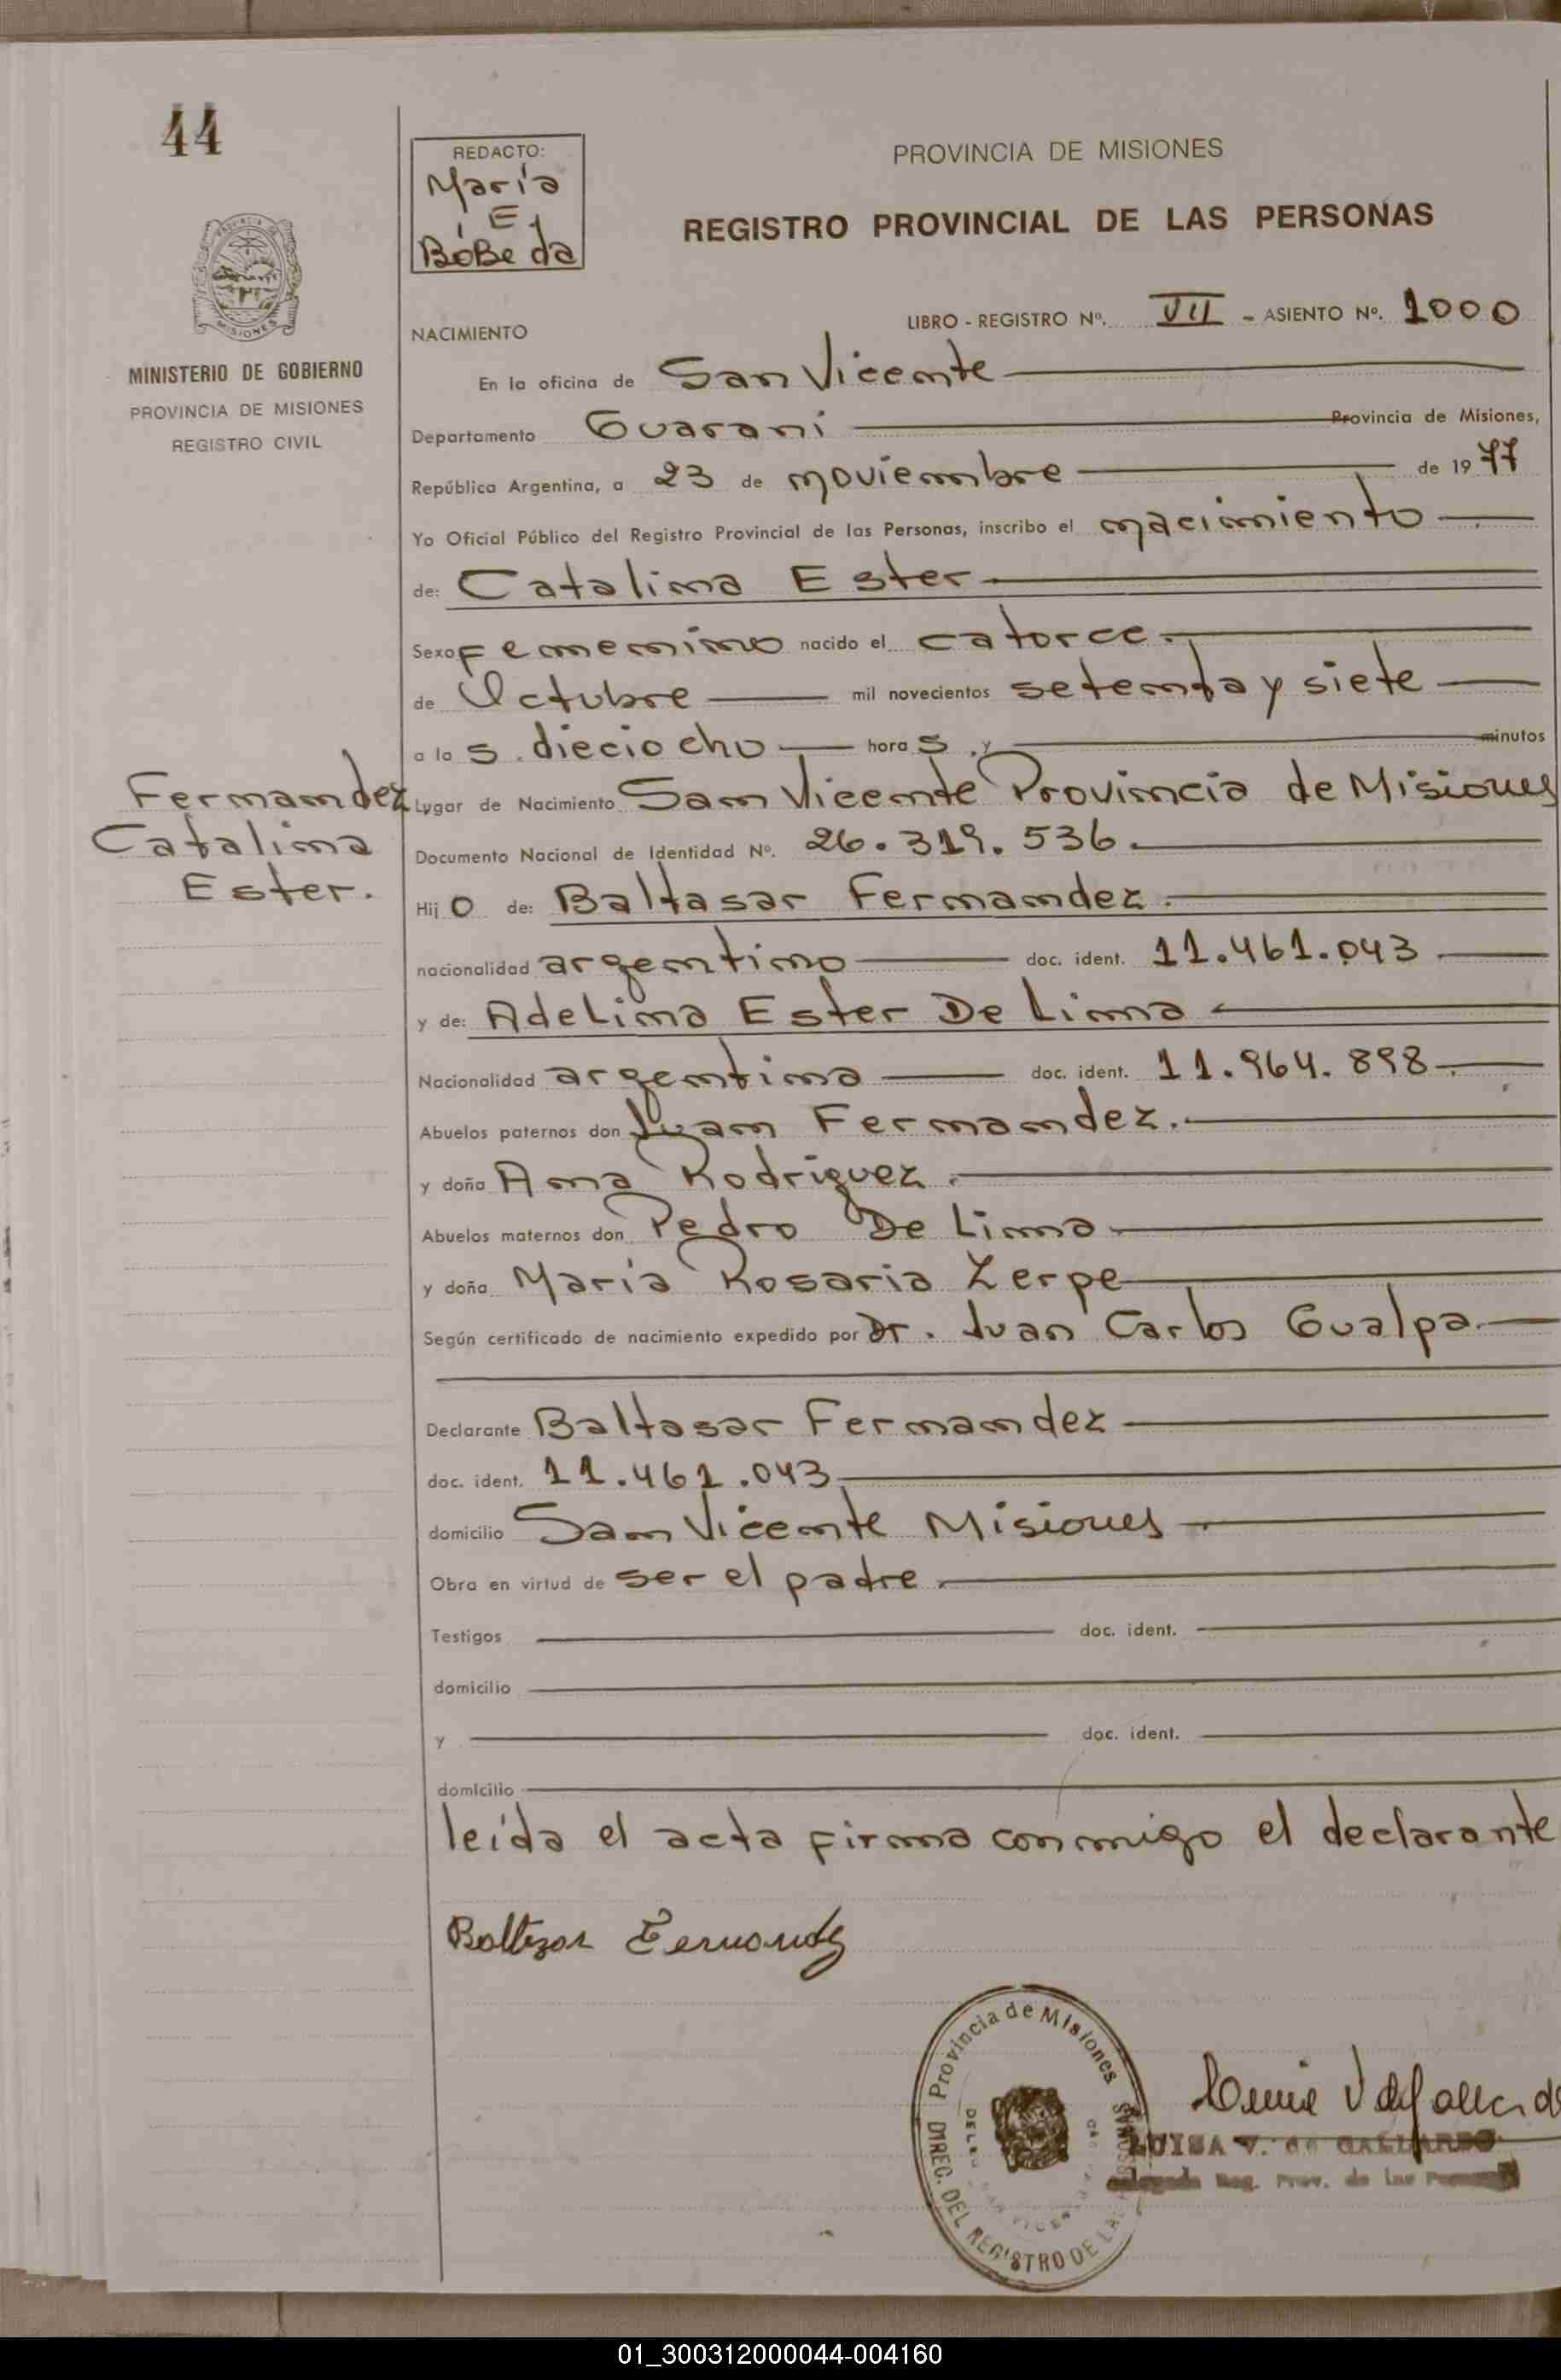 44
REDACTO:
María
E
BóBeda
PROVINCIA DE MISIONES
REGISTRO PROVINCIAL DE LAS PERSONAS
MISIONES
MINISTERIO DE GOBIERNO
PROVINCIA DE MISIONES
REGISTRO CIVIL
NACIMIENTO
LIBRO - REGISTRO Nº. VII - ASIENTO Nº. 1000
En la oficina de San Vicente
Departamento Guarani Provincia de Misiones,
República Argentina, a 23 de noviembre de 1977
Yo Oficial Público del Registro Provincial de las Personas, inscribo el nacimiento
de: Catalina Ester
Sexo Femenino nacido el catorce.
de Octubre mil novecientos setenta y siete
a la s. dieciocho hora s. y minutos
Fernandez
Catalina
Ester.
Lugar de Nacimiento San Vicente Provincia de Misiones
Documento Nacional de Identidad Nº. 26.319.536.
Hij o de: Baltasar Fernandez.
nacionalidad argentino doc. ident. 11.461.043
y de: Adelina Ester De Lima
Nacionalidad argentina doc. ident. 11.964.898
Abuelos paternos don Juan Fernandez.
y doña Ana Rodriguez.
Abuelos maternos don Pedro De Lima
y doña María Rosaria Zerpe
Según certificado de nacimiento expedido por Dr. Juan Carlos Gualpa.
Declarante Baltasar Fernandez
doc. ident. 11.461.043
domicilio San Vicente Misiones
Obra en virtud de ser el padre.
Testigos doc. ident.
domicilio
y doc. ident.
domicilio
leída el acta firma conmigo el declarante
Baltazar Fernandez
Provincia de Misiones
DIREC. DEL REGISTRO DE LAS PERSONAS
LUISA V. de GALLARDO
Delegada Reg. Prov. de las Personas
01_300312000044-004160